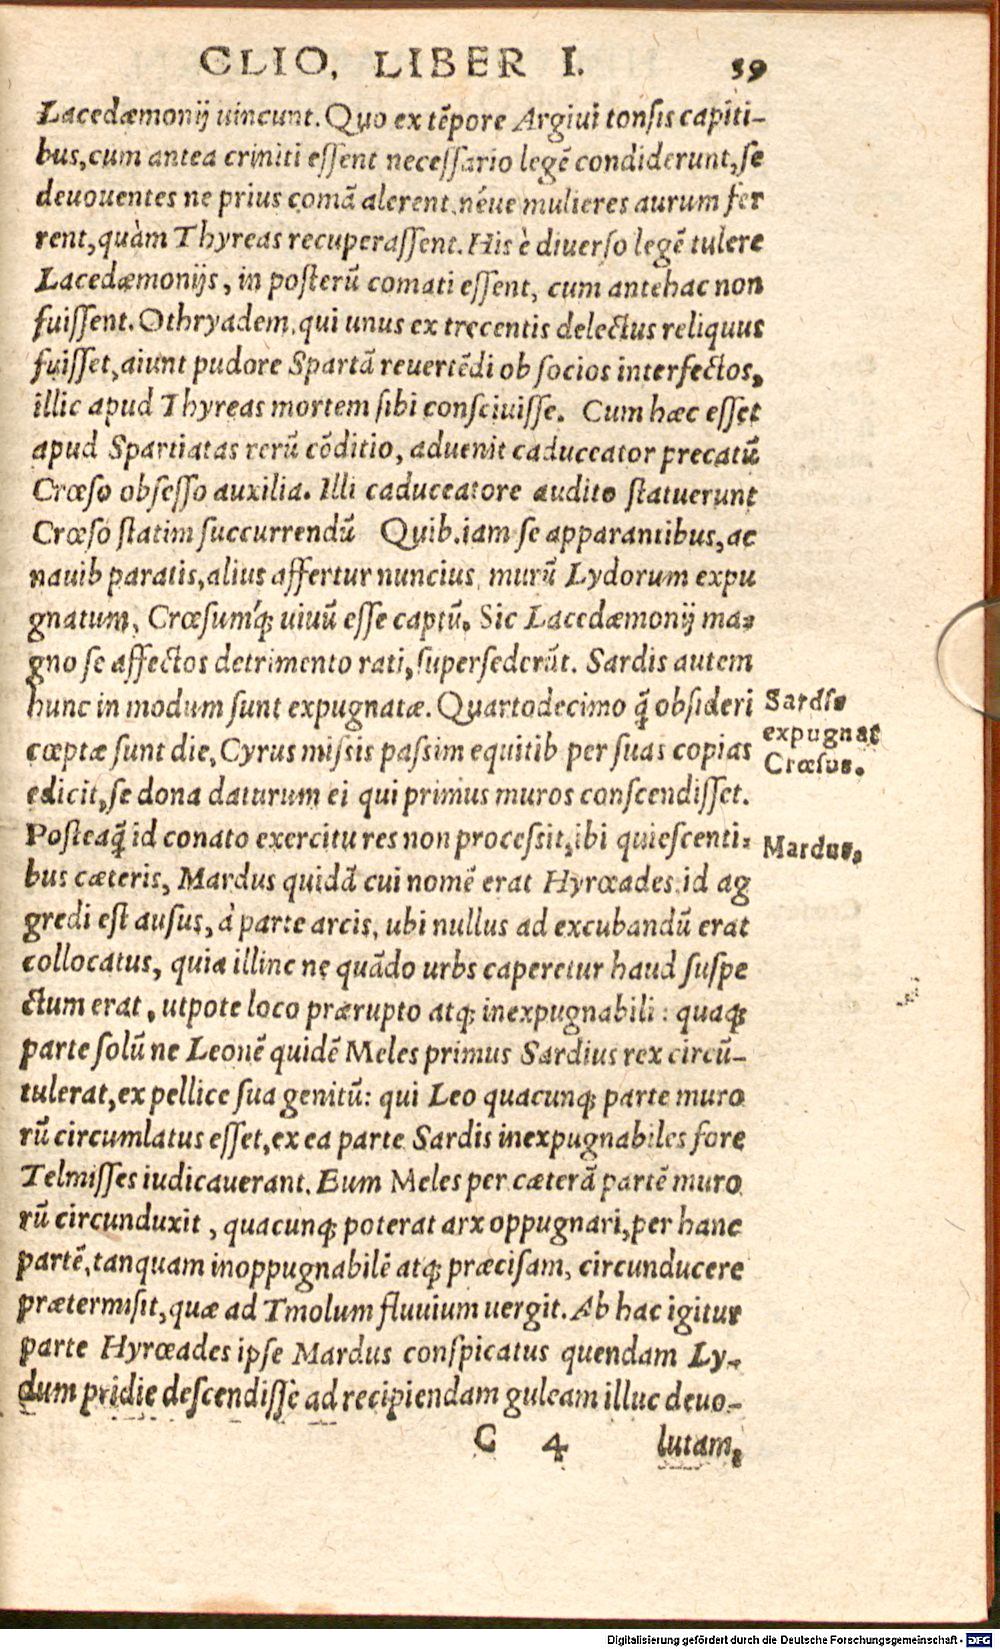 CLIO, LIBER I. 39
Lacedæmonij uincunt. Quo ex tẽpore Argiui tonsis capiti-
bus, cum antea criniti essent necessario legẽ condiderunt, se
deuouentes ne prius comã alerent, néue mulieres aurum fer
rent, quàm Thyreas recuperassent. His è diuerso legẽ tulere
Lacedæmonijs, in posterũ comati essent, cum antehac non
fuissent. Othryadem, qui unus ex trecentis delectus reliquus
fuisset, aiunt pudore Spartã reuertẽdi ob socios interfectos,
illic apud Thyreas mortem sibi consciuisse. Cum hæc esset
apud Spartiatas rerũ cõditio, aduenit caduceator precatũ
Crœso obsesso auxilia. Illi caduceatore audito statuerunt
Crœso statim succurrendũ Quib. iam se apparantibus, ac
nauib paratis, alius affertur nuncius, murũ Lydorum expu
gnatum, Crœsumq́; uiuũ esse captũ. Sic Lacedæmonij ma-
gno se affectos detrimento rati, supersederũt. Sardis autem
hunc in modum sunt expugnatæ. Quartodecimo q̃ obsideri
cœptæ sunt die, Cyrus missis passim equitib per suas copias
edicit, se dona daturum ei qui primus muros conscendisset.
Posteaq̃ id conato exercitu res non processit, ibi quiescenti-
bus cæteris, Mardus quidã cui nomẽ erat Hyrœades, id ag
gredi est ausus, à parte arcis, ubi nullus ad excubandũ erat
collocatus, quia illinc ne quãdo urbs caperetur haud suspe
ctum erat, utpote loco prærupto atq; inexpugnabili: quaq;
parte solũ ne Leonẽ quidẽ Meles primus Sardius rex circũ-
tulerat, ex pellice sua genitũ: qui Leo quacunq; parte muro
rũ circumlatus esset, ex ea parte Sardis inexpugnabiles fore
Telmisses iudicauerant. Eum Meles per cæterã partẽ muro
rũ circunduxit, quacunq; poterat arx oppugnari, per hanc
partẽ, tanquam inoppugnabilẽ atq; præcisam, circunducere
prætermisit, quæ ad Tmolum fluuium uergit. Ab hac igitur
parte Hyrœades ipse Mardus conspicatus quendam Ly-
dum pridie descendisse ad recipiendam guleam illuc deuo-
C 4 lutam,
Sardis
expugnat
Crœsus.
Mardus.
Digitalisierung gefördert durch die Deutsche Forschungsgemeinschaft - DFG